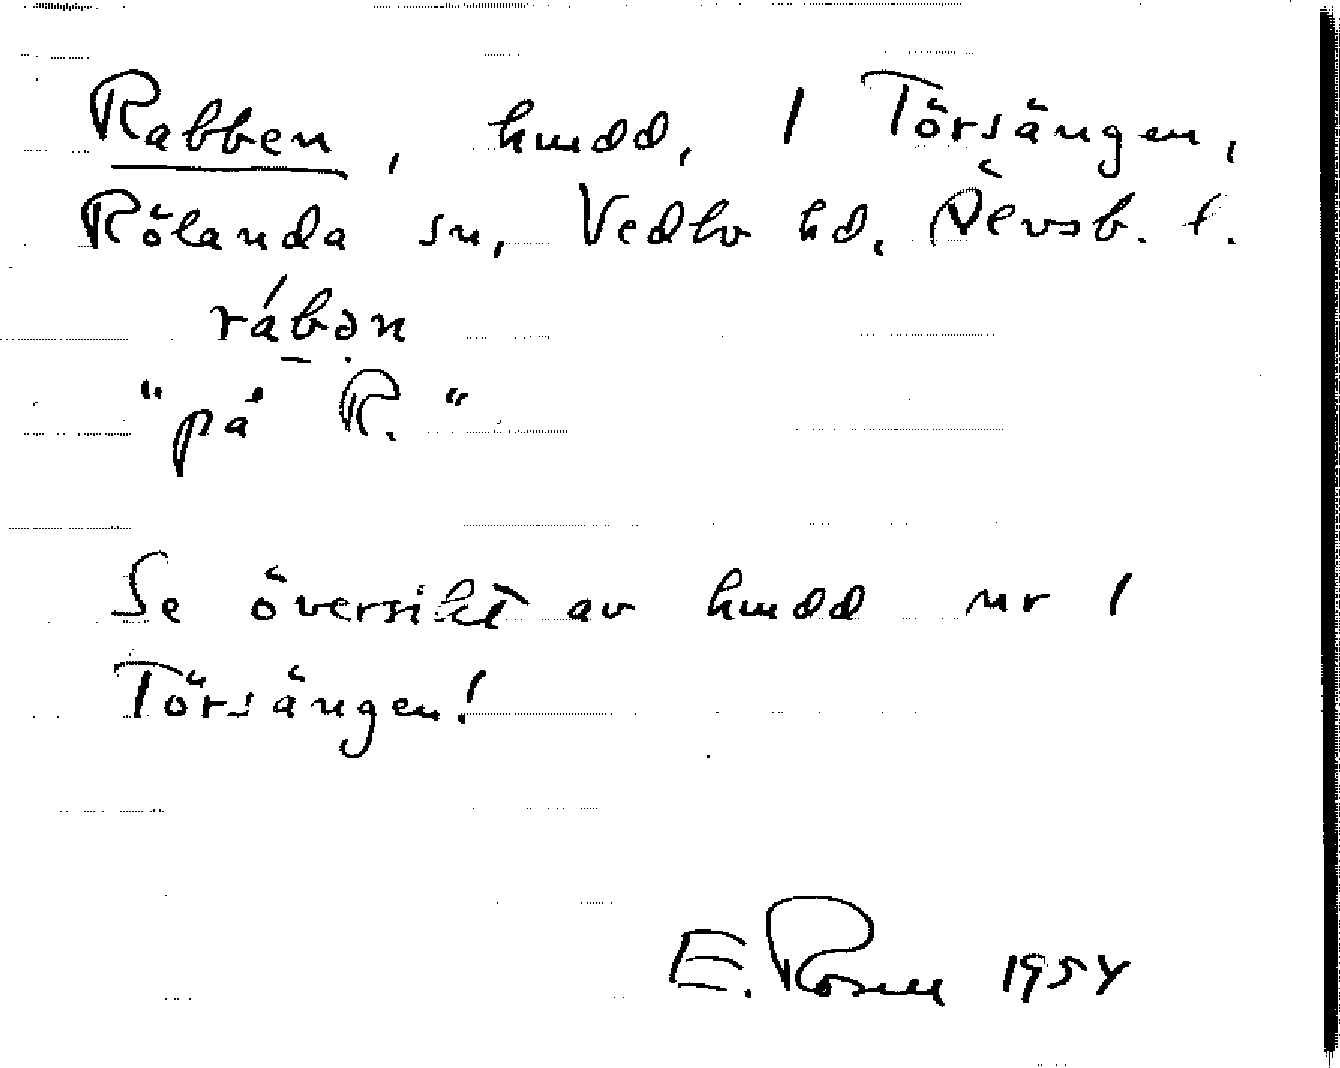 Rabben, hmdd, 1 Törsängen,
Rölanda sn, Vedbo hd, Älvsb. l.
rábən
"på R."
Se översikt av hmdd nr 1
Törsängen!
E. Rosell 1954